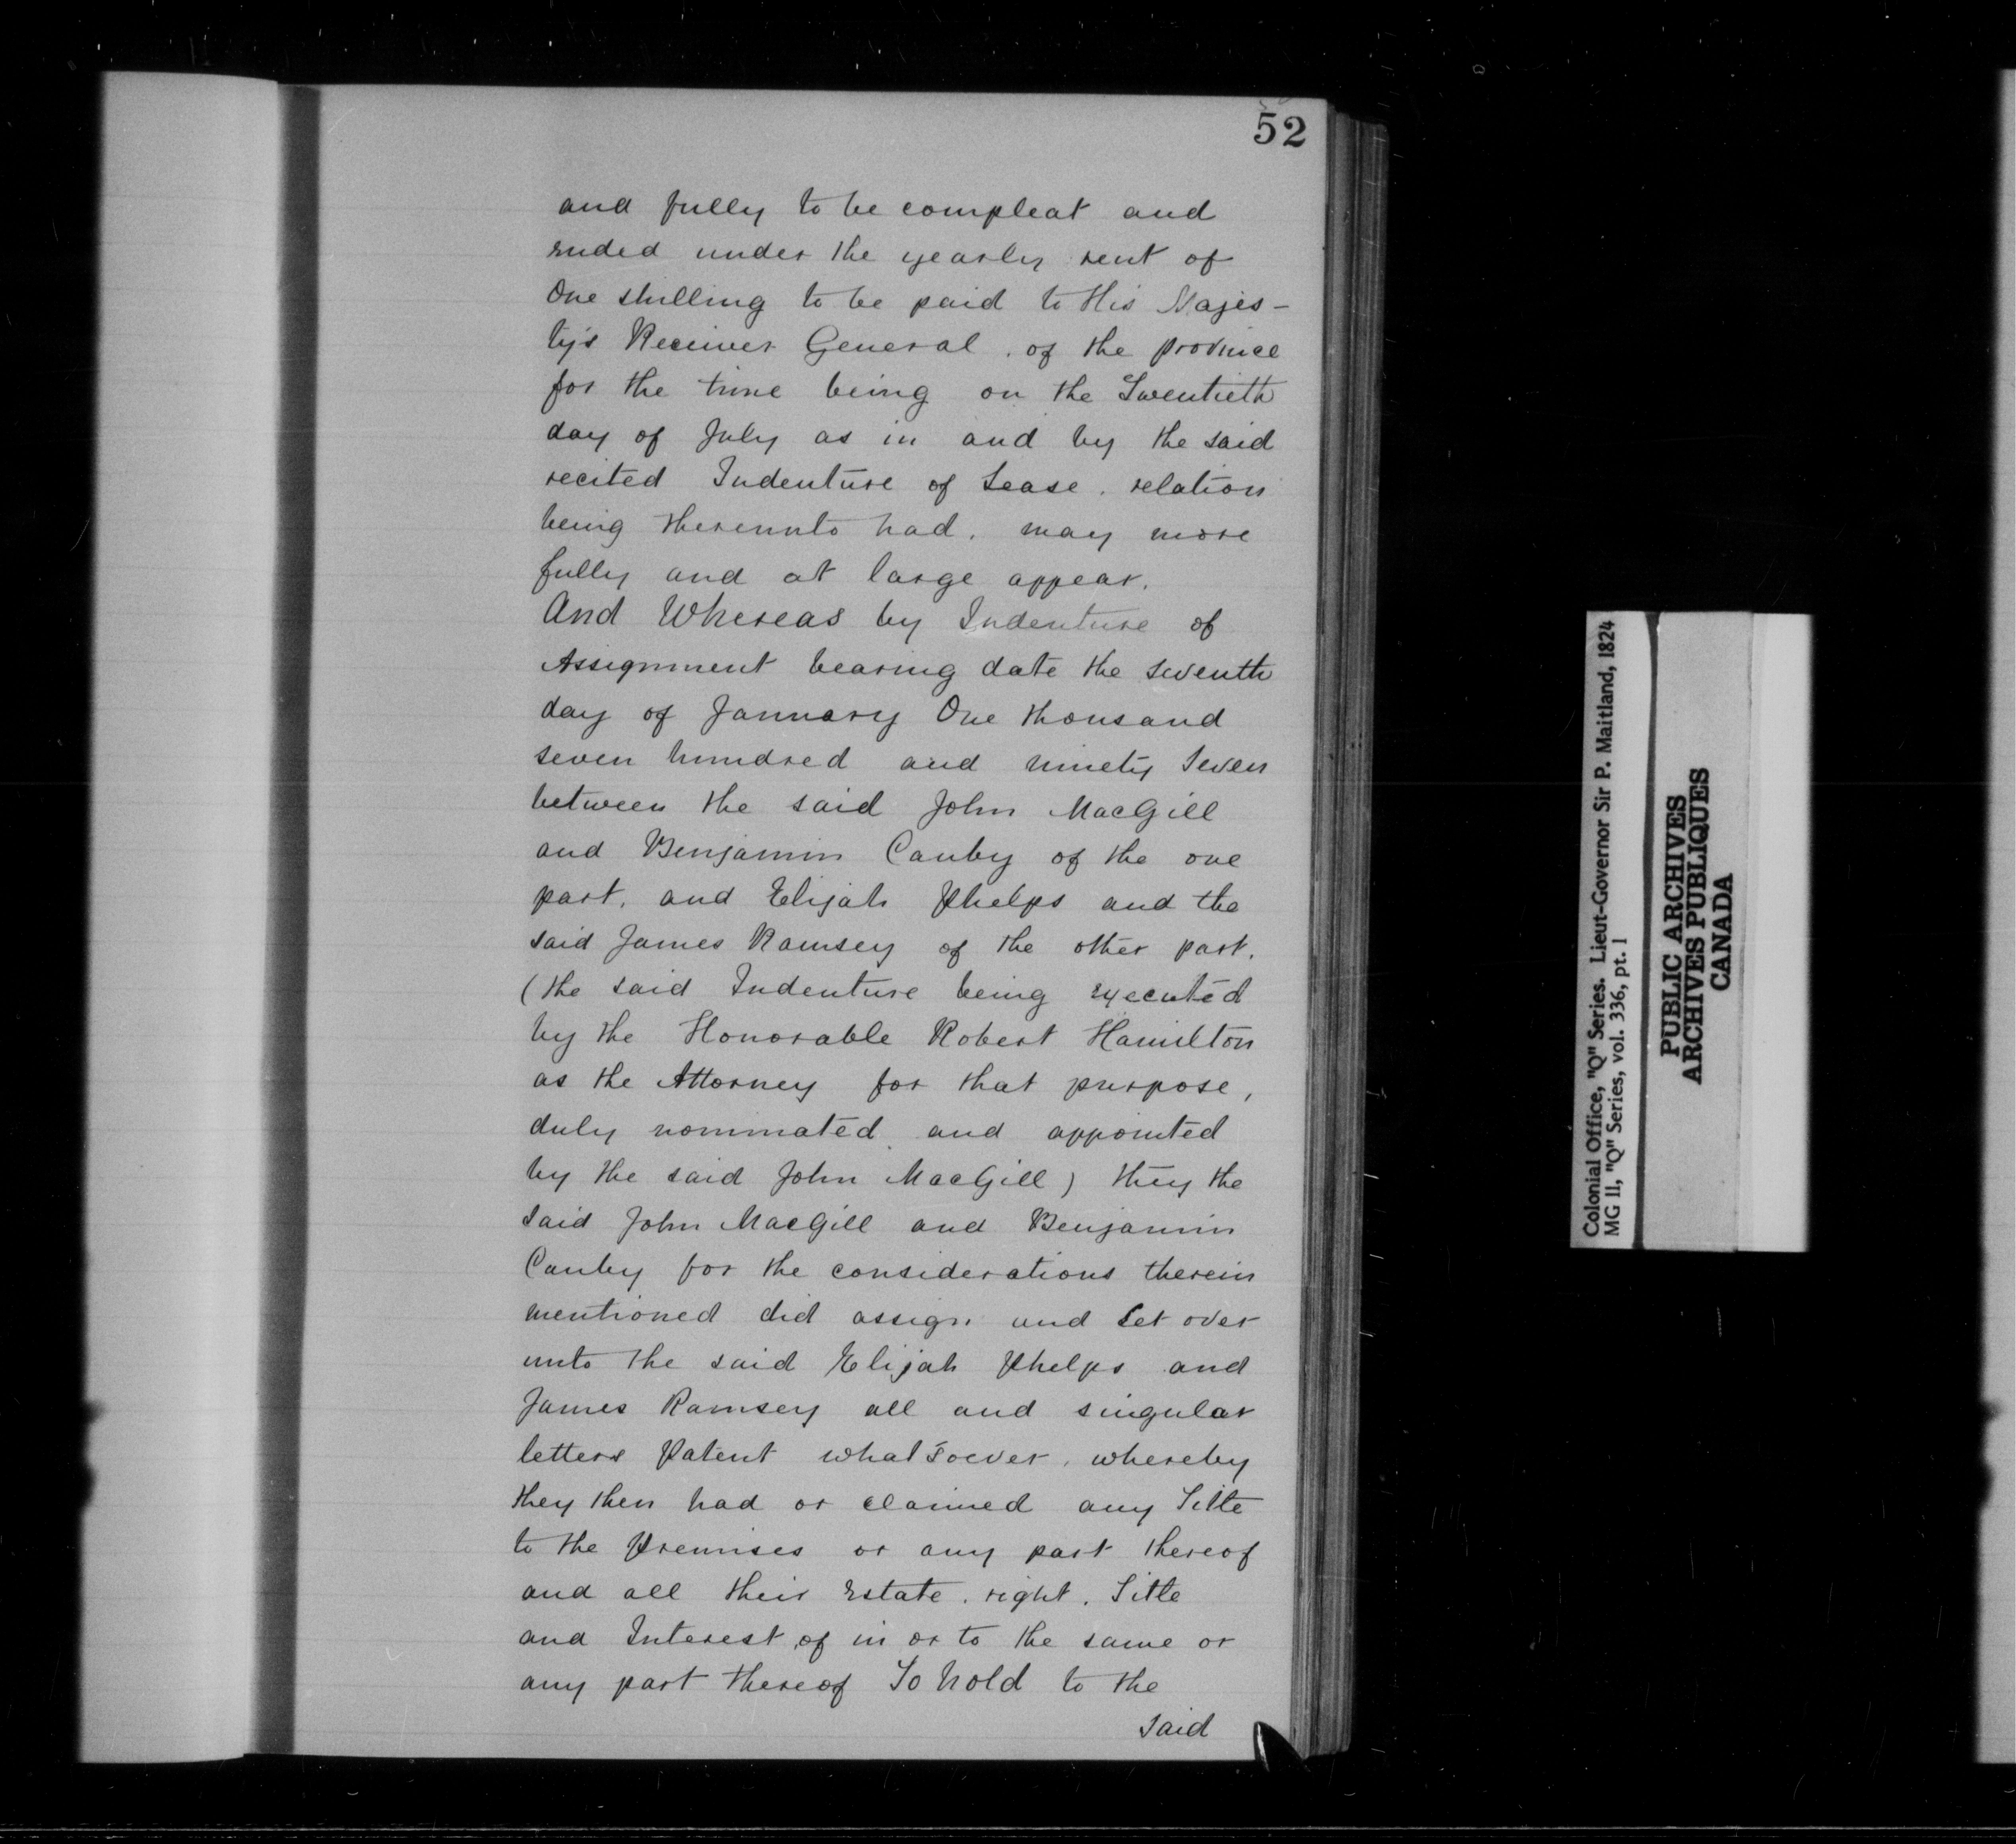 52
and fully to be compleat and
ended under the yearly rent of
One shilling to be paid to His Majes-
ty's Receiver General . of the province
for the time being on the Twentieth
day of July as in and by the said
recited Indenture of Lease . relation
being thereunto had . may more
fully and at large appear.
And Whereas by Indenture of
Assignment bearing date the seventh
day of January One thousand
seven hundred and ninety seven
between the said John MacGill
and Benjamin Canby of the one
part . and Elijah Phelps and the
said James Ramsey of the other part.
(the said Indenture being executed
by the Honorable Robert Hamilton
as the Attorney for that purpose,
duly nominated and appointed
by the said John MacGill) they the
said John MacGill and Benjamin
Canby for the considerations therein
mentioned did assign and set over
unto the said Elijah Phelps and
James Ramsey all and singular
letters Patent whatsoever . whereby
they then had or claimed any Title
to the Premises or any part thereof
and all their Estate . right . Title
and Interest of in or to the same or
any part thereof To hold to the
said
Colonial Office, "Q" Series. Lieut-Governor Sir P. Maitland, 1824
MG 11, "Q" Series, vol. 336, pt. 1
PUBLIC ARCHIVES
ARCHIVES PUBLIQUES
CANADA